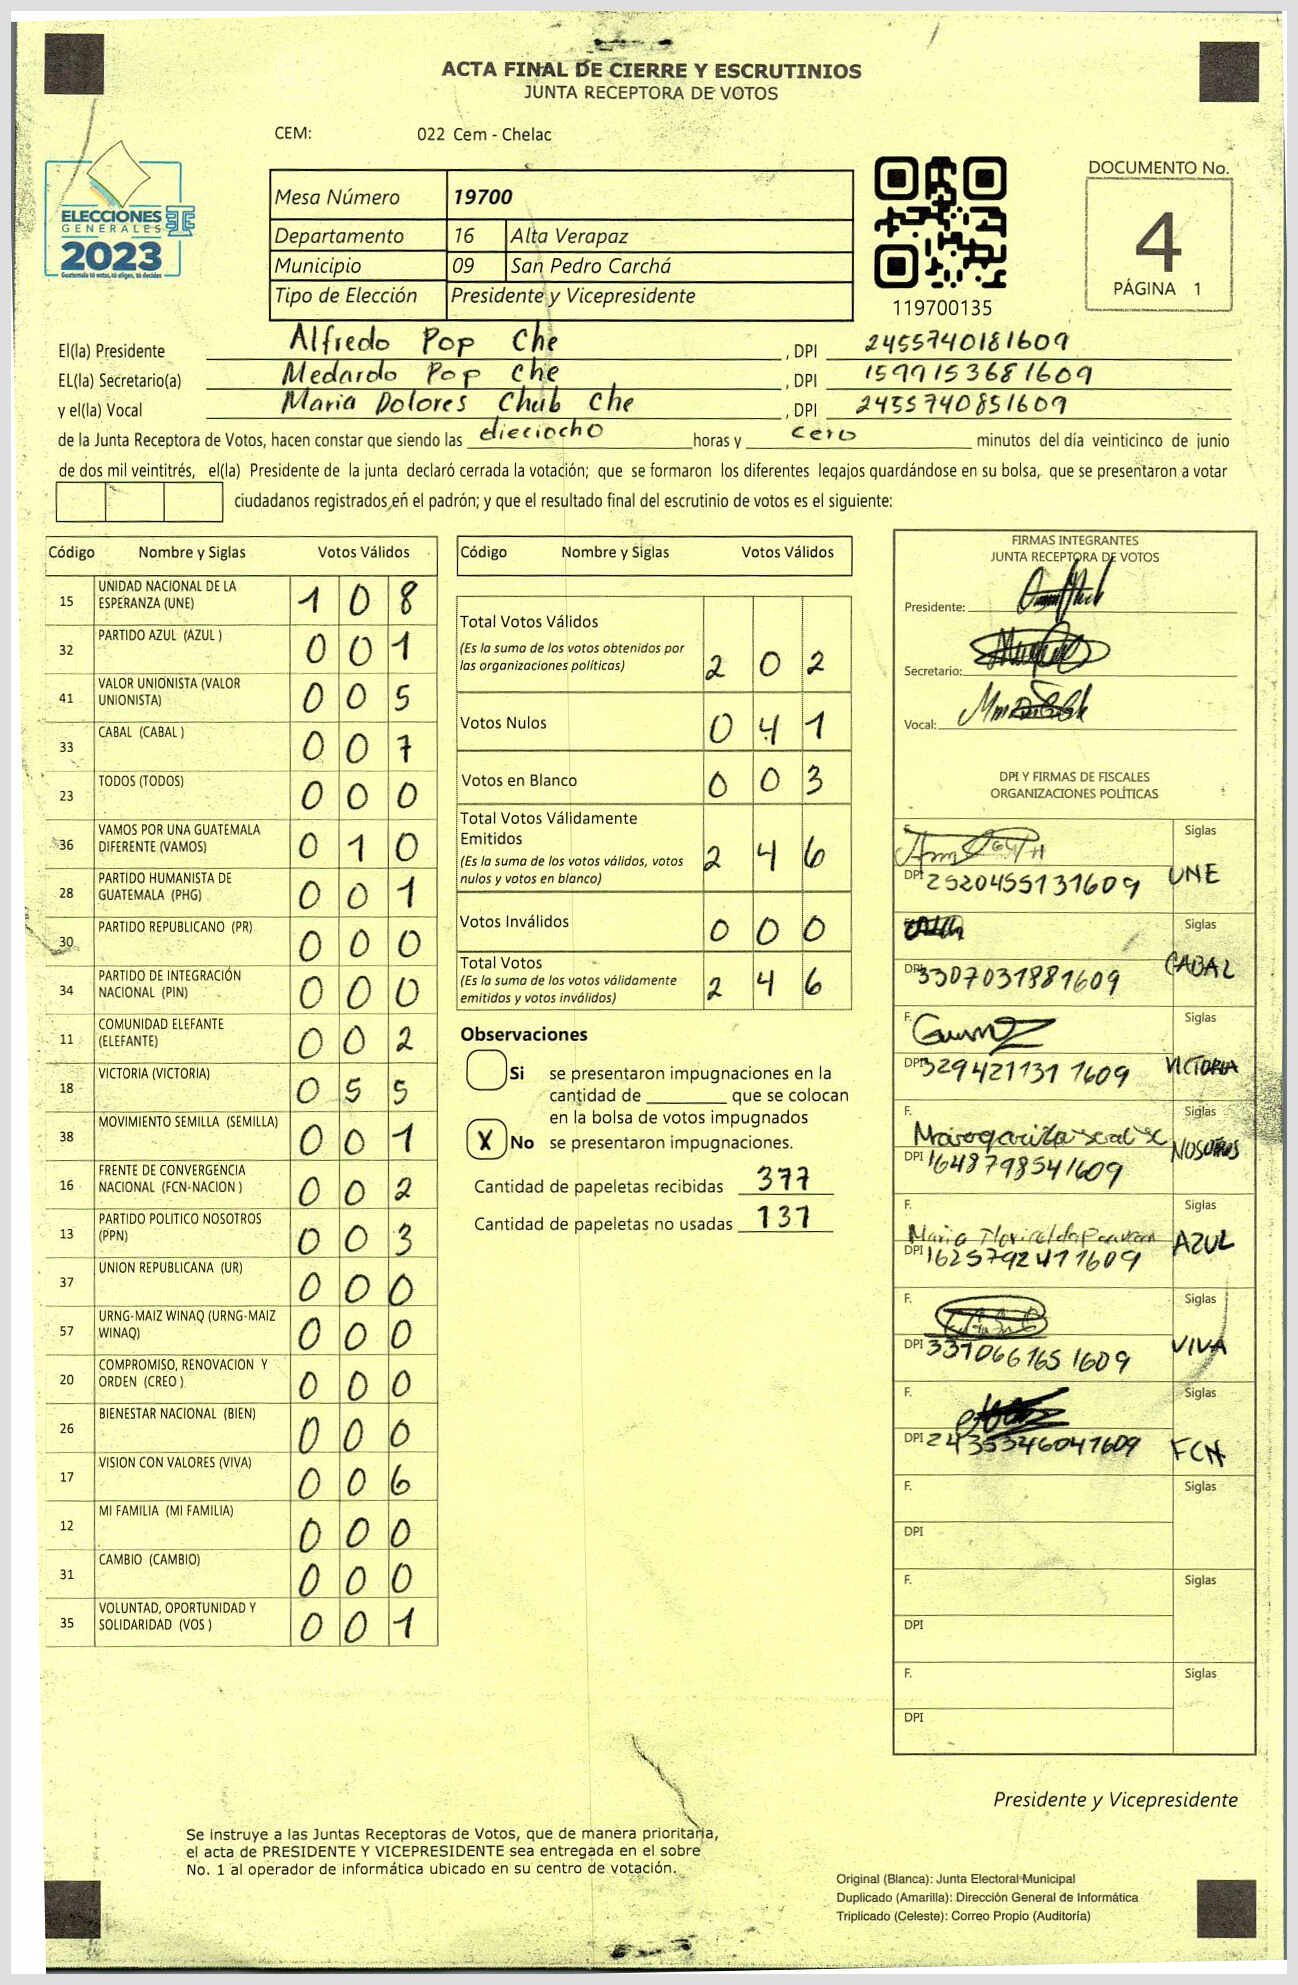 ACTA FINAL DE CIERRE Y ESCRUTINIOS
JUNTA RECEPTORA DE VOTOS
CEM: 022 Cem - Chelac
ELECCIONES
GENERALES
2023
Guatemala tú votas, tú eliges, tú decides
Mesa Número 19700
Departamento 16 Alta Verapaz
Municipio 09 San Pedro Carchá
Tipo de Elección Presidente y Vicepresidente
119700135
DOCUMENTO No.
4
PÁGINA 1
El(la) Presidente Alfredo Pop Che , DPI 2455740181609
EL(la) Secretario(a) Medardo Pop Che , DPI 1599153681609
y el(la) Vocal Maria Dolores Chub Che , DPI 2455740851609
de la Junta Receptora de Votos, hacen constar que siendo las dieciocho horas y cero minutos del día veinticinco de junio
de dos mil veintitrés, el(la) Presidente de la junta declaró cerrada la votación; que se formaron los diferentes legajos guardándose en su bolsa, que se presentaron a votar
ciudadanos registrados en el padrón; y que el resultado final del escrutinio de votos es el siguiente:
Código Nombre y Siglas Votos Válidos
15 UNIDAD NACIONAL DE LA ESPERANZA (UNE) 1 0 8
32 PARTIDO AZUL (AZUL ) 0 0 1
41 VALOR UNIONISTA (VALOR UNIONISTA) 0 0 5
33 CABAL (CABAL ) 0 0 7
23 TODOS (TODOS) 0 0 0
36 VAMOS POR UNA GUATEMALA DIFERENTE (VAMOS) 0 1 0
28 PARTIDO HUMANISTA DE GUATEMALA (PHG) 0 0 1
30 PARTIDO REPUBLICANO (PR) 0 0 0
34 PARTIDO DE INTEGRACIÓN NACIONAL (PIN) 0 0 0
11 COMUNIDAD ELEFANTE (ELEFANTE) 0 0 2
18 VICTORIA (VICTORIA) 0 5 5
38 MOVIMIENTO SEMILLA (SEMILLA) 0 0 1
16 FRENTE DE CONVERGENCIA NACIONAL (FCN-NACION ) 0 0 2
13 PARTIDO POLITICO NOSOTROS (PPN) 0 0 3
37 UNION REPUBLICANA (UR) 0 0 0
57 URNG-MAIZ WINAQ (URNG-MAIZ WINAQ) 0 0 0
20 COMPROMISO, RENOVACION Y ORDEN (CREO ) 0 0 0
26 BIENESTAR NACIONAL (BIEN) 0 0 0
17 VISION CON VALORES (VIVA) 0 0 6
12 MI FAMILIA (MI FAMILIA) 0 0 0
31 CAMBIO (CAMBIO) 0 0 0
35 VOLUNTAD, OPORTUNIDAD Y SOLIDARIDAD (VOS ) 0 0 1
Código Nombre y Siglas Votos Válidos
Total Votos Válidos
(Es la suma de los votos obtenidos por
las organizaciones políticas) 2 0 2
Votos Nulos 0 4 1
Votos en Blanco 0 0 3
Total Votos Válidamente
Emitidos
(Es la suma de los votos válidos, votos
nulos y votos en blanco) 2 4 6
Votos Inválidos 0 0 0
Total Votos
(Es la suma de los votos válidamente
emitidos y votos inválidos) 2 4 6
Observaciones
Si se presentaron impugnaciones en la
cantidad de ________ que se colocan
en la bolsa de votos impugnados
X No se presentaron impugnaciones.
Cantidad de papeletas recibidas 377
Cantidad de papeletas no usadas 137
FIRMAS INTEGRANTES
JUNTA RECEPTORA DE VOTOS
Presidente:
Secretario:
Vocal:
DPI Y FIRMAS DE FISCALES
ORGANIZACIONES POLÍTICAS
F. Siglas
DPI 2520455131609 UNE
F. Siglas
DPI 3307031881609 CABAL
F. Siglas
DPI 3294211311609 VICTORIA
F. Siglas
DPI 1648798541609 NOSOTROS
F. Siglas
DPI 1625792411609 AZUL
F. Siglas
DPI 3310661651609 VIVA
F. Siglas
DPI 2435346041609 FCN
F. Siglas
DPI
F. Siglas
DPI
F. Siglas
DPI
Presidente y Vicepresidente
Se instruye a las Juntas Receptoras de Votos, que de manera prioritaria,
el acta de PRESIDENTE Y VICEPRESIDENTE sea entregada en el sobre
No. 1 al operador de informática ubicado en su centro de votación.
Original (Blanca): Junta Electoral Municipal
Duplicado (Amarilla): Dirección General de Informática
Triplicado (Celeste): Correo Propio (Auditoría)